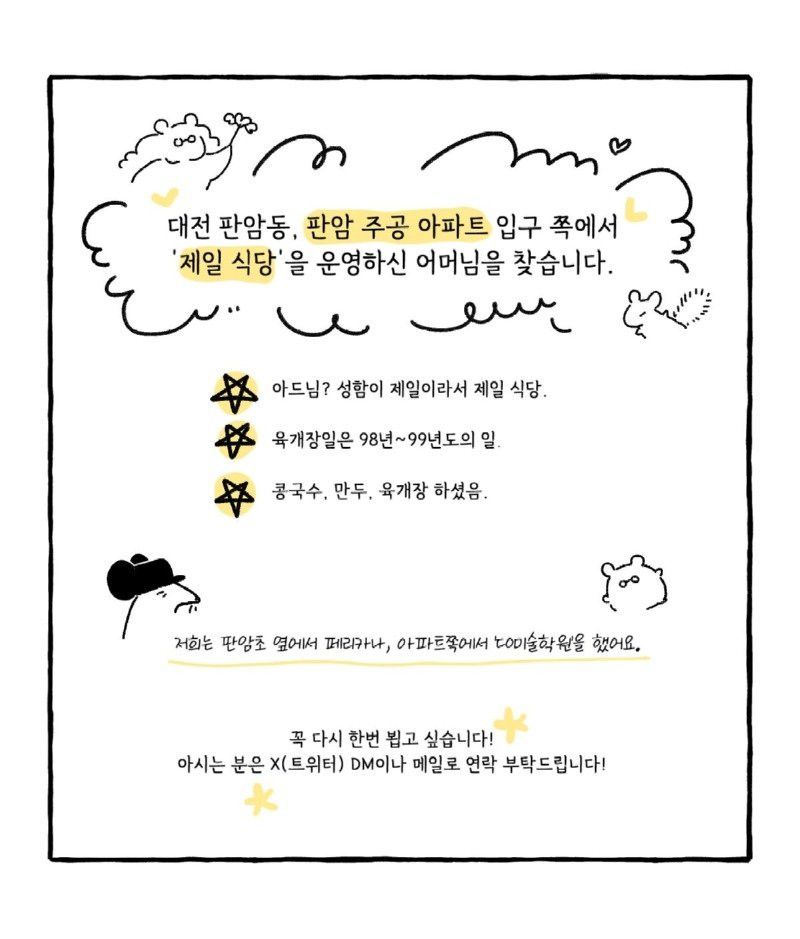 대전 판암동, 판암 주공 아파트 입구 쪽에서
'제일 식당'을 운영하신 어머님을 찾습니다.
아드님? 성함이 제일이라서 제일 식당.
육개장일은 98년~99년도의 일.
콩국수, 만두, 육개장 하셨음.
저희는 판암초 옆에서 페리카나, 아파트쪽에서
꼭 다시 한번 뵙고 싶습니다!
아시는 분은 X(트위터) DM이나 메일로 연락 부탁드립니다!